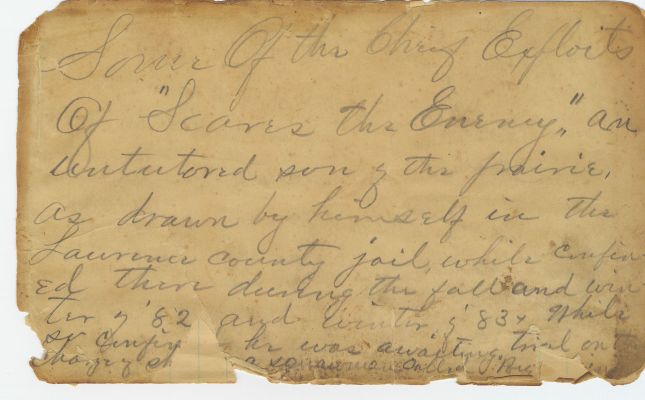 Some Of the Chief Exploits
Of "Scares the Enemy," an
untutored son of the prairie,
as drawn by himself in the
Lawrence county jail, while confin
ed there during the fall and win
ter of '82 and winter of '83+ While
so confin he was awaiting trial on t
charge of sh a squawman called